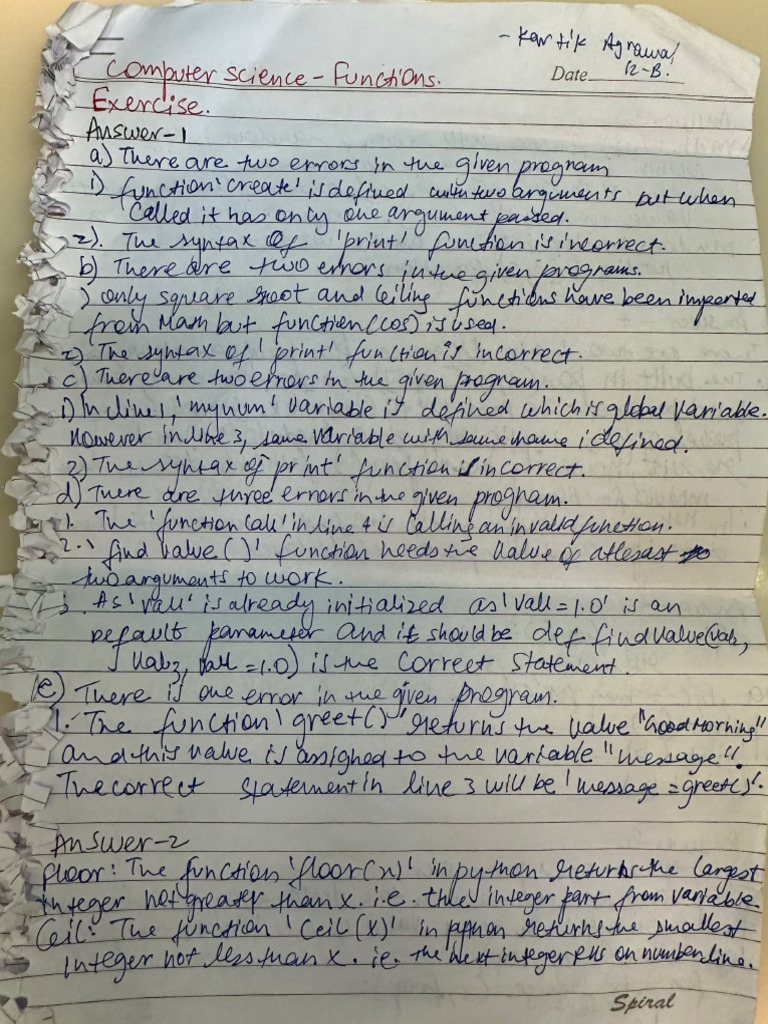 - Kartik Agrawal
12-B.
Date
Computer science - Functions.
Exercise.
Answer-1
a) There are two errors in the given program
1) function 'create' is defined with two arguments but when
called it has only one argument passed.
2). The syntax of 'print' function is incorrect.
b) There are two errors in the given programs.
) only square root and Ceiling functions have been imported
from Math but function (cos) is used.
2) The syntax of 'print' function is incorrect.
c) There are two errors in the given program.
1) In line 1, 'mynum' variable is defined which is global variable.
However in line 3, same variable with same name i defined.
2) The syntax of 'print' function is incorrect.
d) There are three errors in the given program.
1. The 'function call' in line 4 is calling an invalid function.
2. 'find value ()' function needs the value of atleast
two arguments to work.
3. As 'val1' is already initialized as 'val1 = 1.0' is an
default parameter and it should be def findvalue(val2,
val3, val1 = 1.0) is the correct statement.
e) There is one error in the given program.
1. The function 'greet()' returns the value "Good Morning"
and this value is assigned to the variable "message".
The correct statement in line 3 will be 'message = greet()'.
Answer-2
floor: The function 'floor(x)' in python returns the largest
integer not greater than x. i.e. the integer part from variable.
Ceil: The function 'Ceil (x)' in python returns the smallest
integer not less than x. ie. the next integer RHS on number line.
Spiral